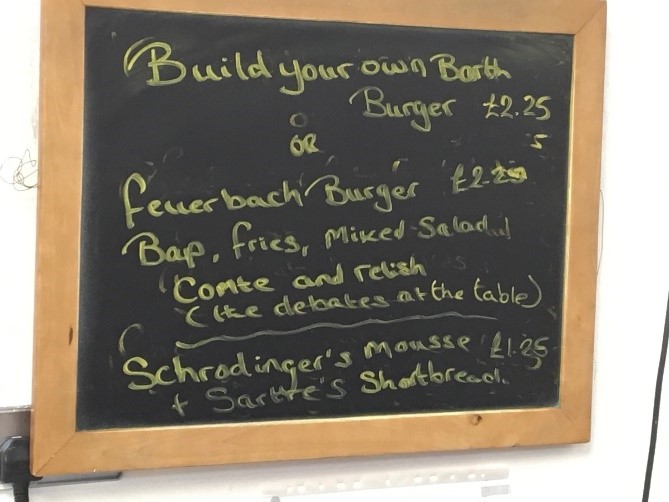 Build your own Barth
Burger £2.25
OR
Feuerbach Burger
Bap, fries, Mixed Salad
Comte and relish
(like debates at the table)
Schrodinger's mousse £1.25
+ Sartre's Shortbread.